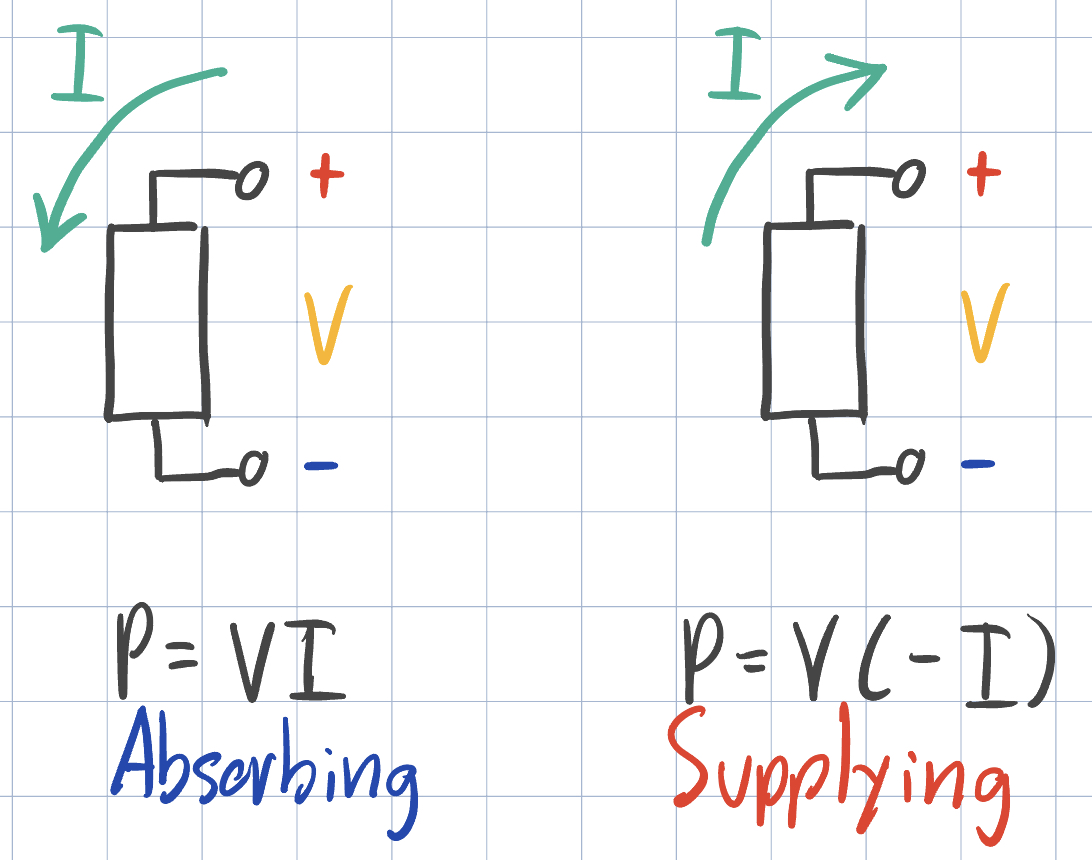 I
+
V
-
P = VI
Absorbing
I
+
V
-
P = V(-I)
Supplying